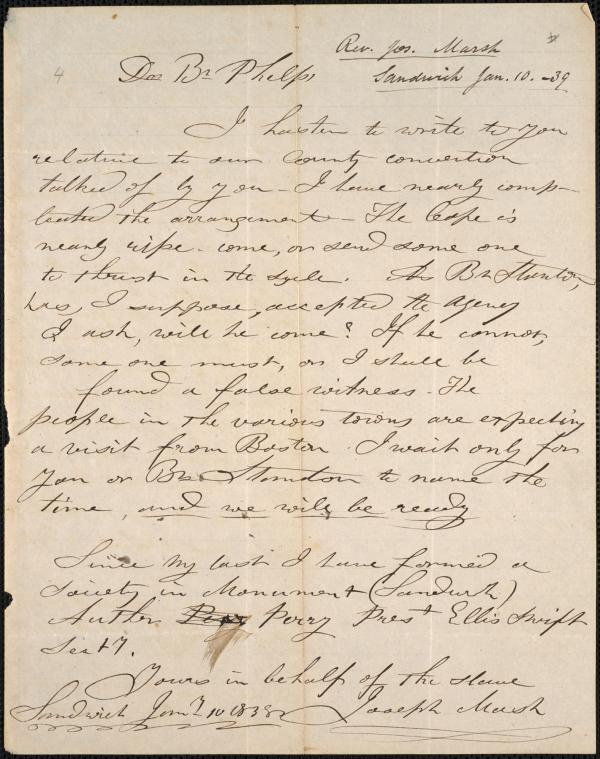 4
Rev. Jos. Marsh
Dr Br Phelps
Sandwich Jan. 10. -39
I hasten to write to you
relative to our County convention
talked of by you - I have nearly comp-
leated the arrangement - The Cape is
nearly ripe - come, or send some one
to thrust in the sycle. As Br Stanton,
has, I suppose, accepted the agency
I ask, will he come? If he cannot,
some one must, or I shall be
found a false witness - The
people in the various towns are expecting
a visit from Boston. I wait only for
you or Br. Standon to name the
time, and we will be ready
Since my last I have formed a
society in Monument (Sandwich)
Auther Perry Prest Ellis Swift
Sect y.
Yours in behalf of the slave
Sandwich Jany 10 1839 Joseph Marsh